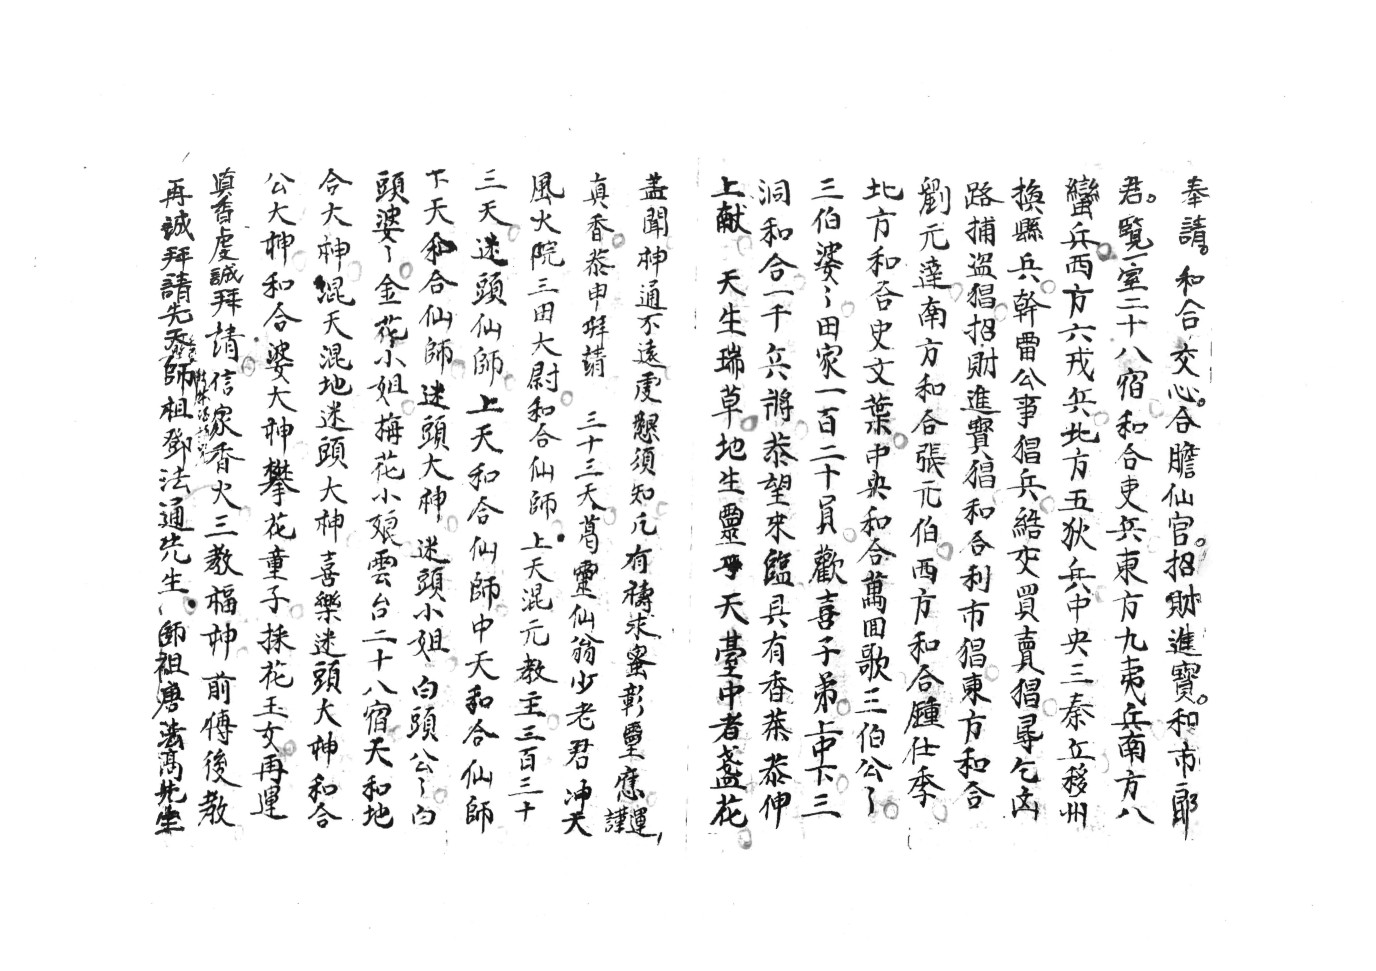 奉請。和合交心。合膽仙官。招財進寶。和市郎
君。覽室二十八宿和合吏兵東方九夷兵南方八
蠻兵西方六戎兵北方五狄兵中央三秦丘移州
換縣兵幹雷公事猖兵絡交買賣猖尋乞凶
路捕盜猖招財進寶猖和合利市猖東方和合
劉元達南方和合張元伯西方和合鍾仕季
北方和合史文業中央和合萬回歌三伯公〻
三伯婆〻田家一百二十員歡喜子弟上中下三
洞和合一千兵將恭望來臨具有香茶恭伸
上献 天生瑞草地生靈天臺中者盞花
蓋聞神通不遠虔懇須知凢有禱求蜜彰靈應謹運
真香恭申拜請 三十三天葛靈仙翁少老君冲天
風火院三田大尉和合仙師上天混元教主三百三十
三天迷頭仙師上天和合仙師中天和合仙師
下天和合仙師迷頭大神迷頭小姐白頭公〻白
頭婆〻金花小姐梅花小娘雲台二十八宿天和地
合大神混天混地迷頭大神喜樂迷頭大神和合
公大神和合婆大神攀花童子採花玉女再運
真香虔誠拜請信家香火三教福神前傳後教
再誠拜請先天師祖鄧法通先生師祖唐法高先生